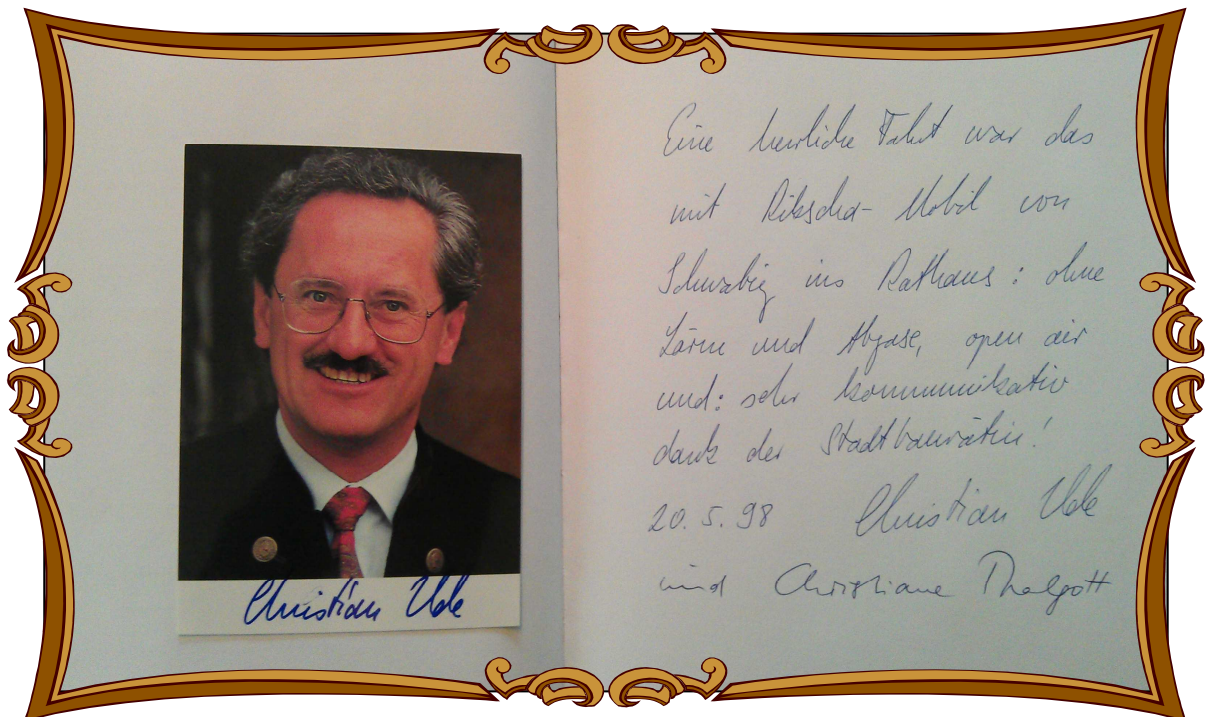 Christian Ude
Eine herrliche Fahrt war das
mit Rikscha-Mobil von
Schwabing ins Rathaus: ohne
Lärm und Abgase, open air
und: sehr kommunikativ
dank der Stadtbaurätin!
20.5.98 Christian Ude
und Christiane Thalgott